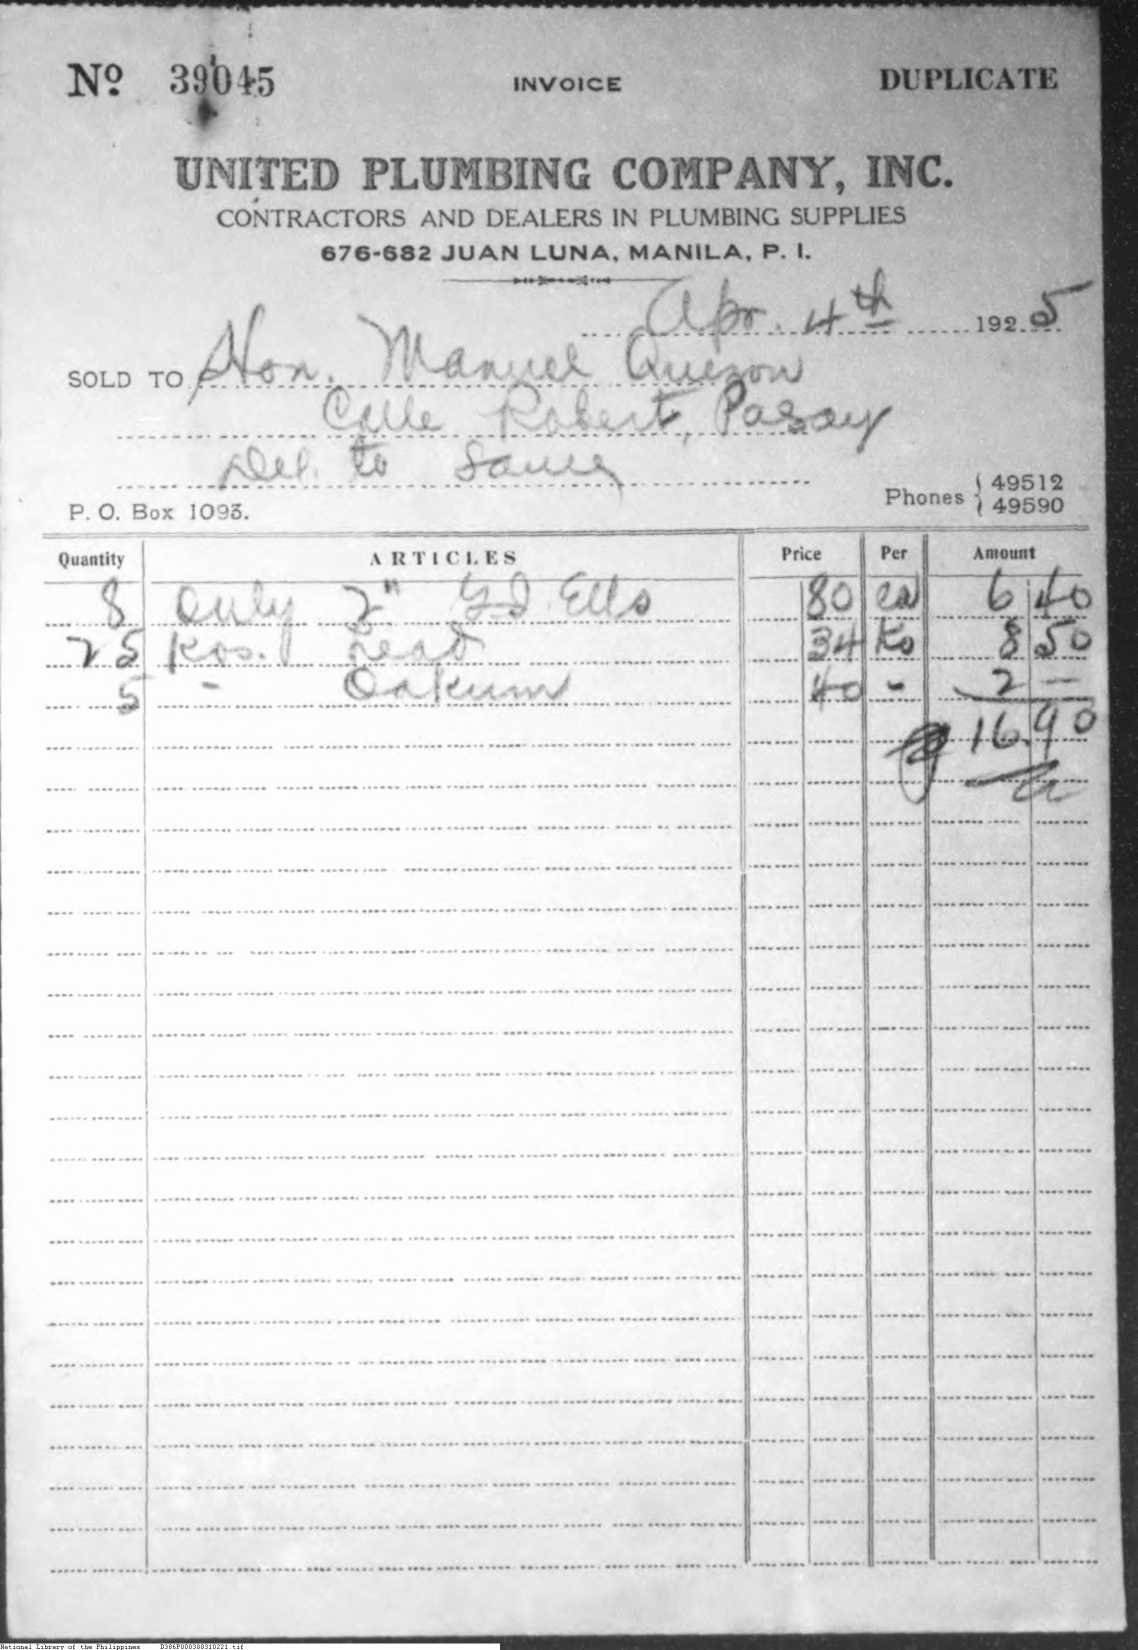 Nº 39045 INVOICE DUPLICATE
UNITED PLUMBING COMPANY, INC.
CONTRACTORS AND DEALERS IN PLUMBING SUPPLIES
676-682 JUAN LUNA, MANILA, P. I.
Apr. 4th 1925
SOLD TO Hon. Manuel Quezon
Calle Robert, Pasay
Del. to Same
P. O. Box 1093. Phones { 49512
{ 49590
Quantity ARTICLES Price Per Amount
8 only 2" G.I. Ells 80 ea 6 40
25 Kos. Lead 34 Ko 8 50
5 - Oakum 40 - 2 —
16.90
National Library of the Philippines D386P000308310221.tif